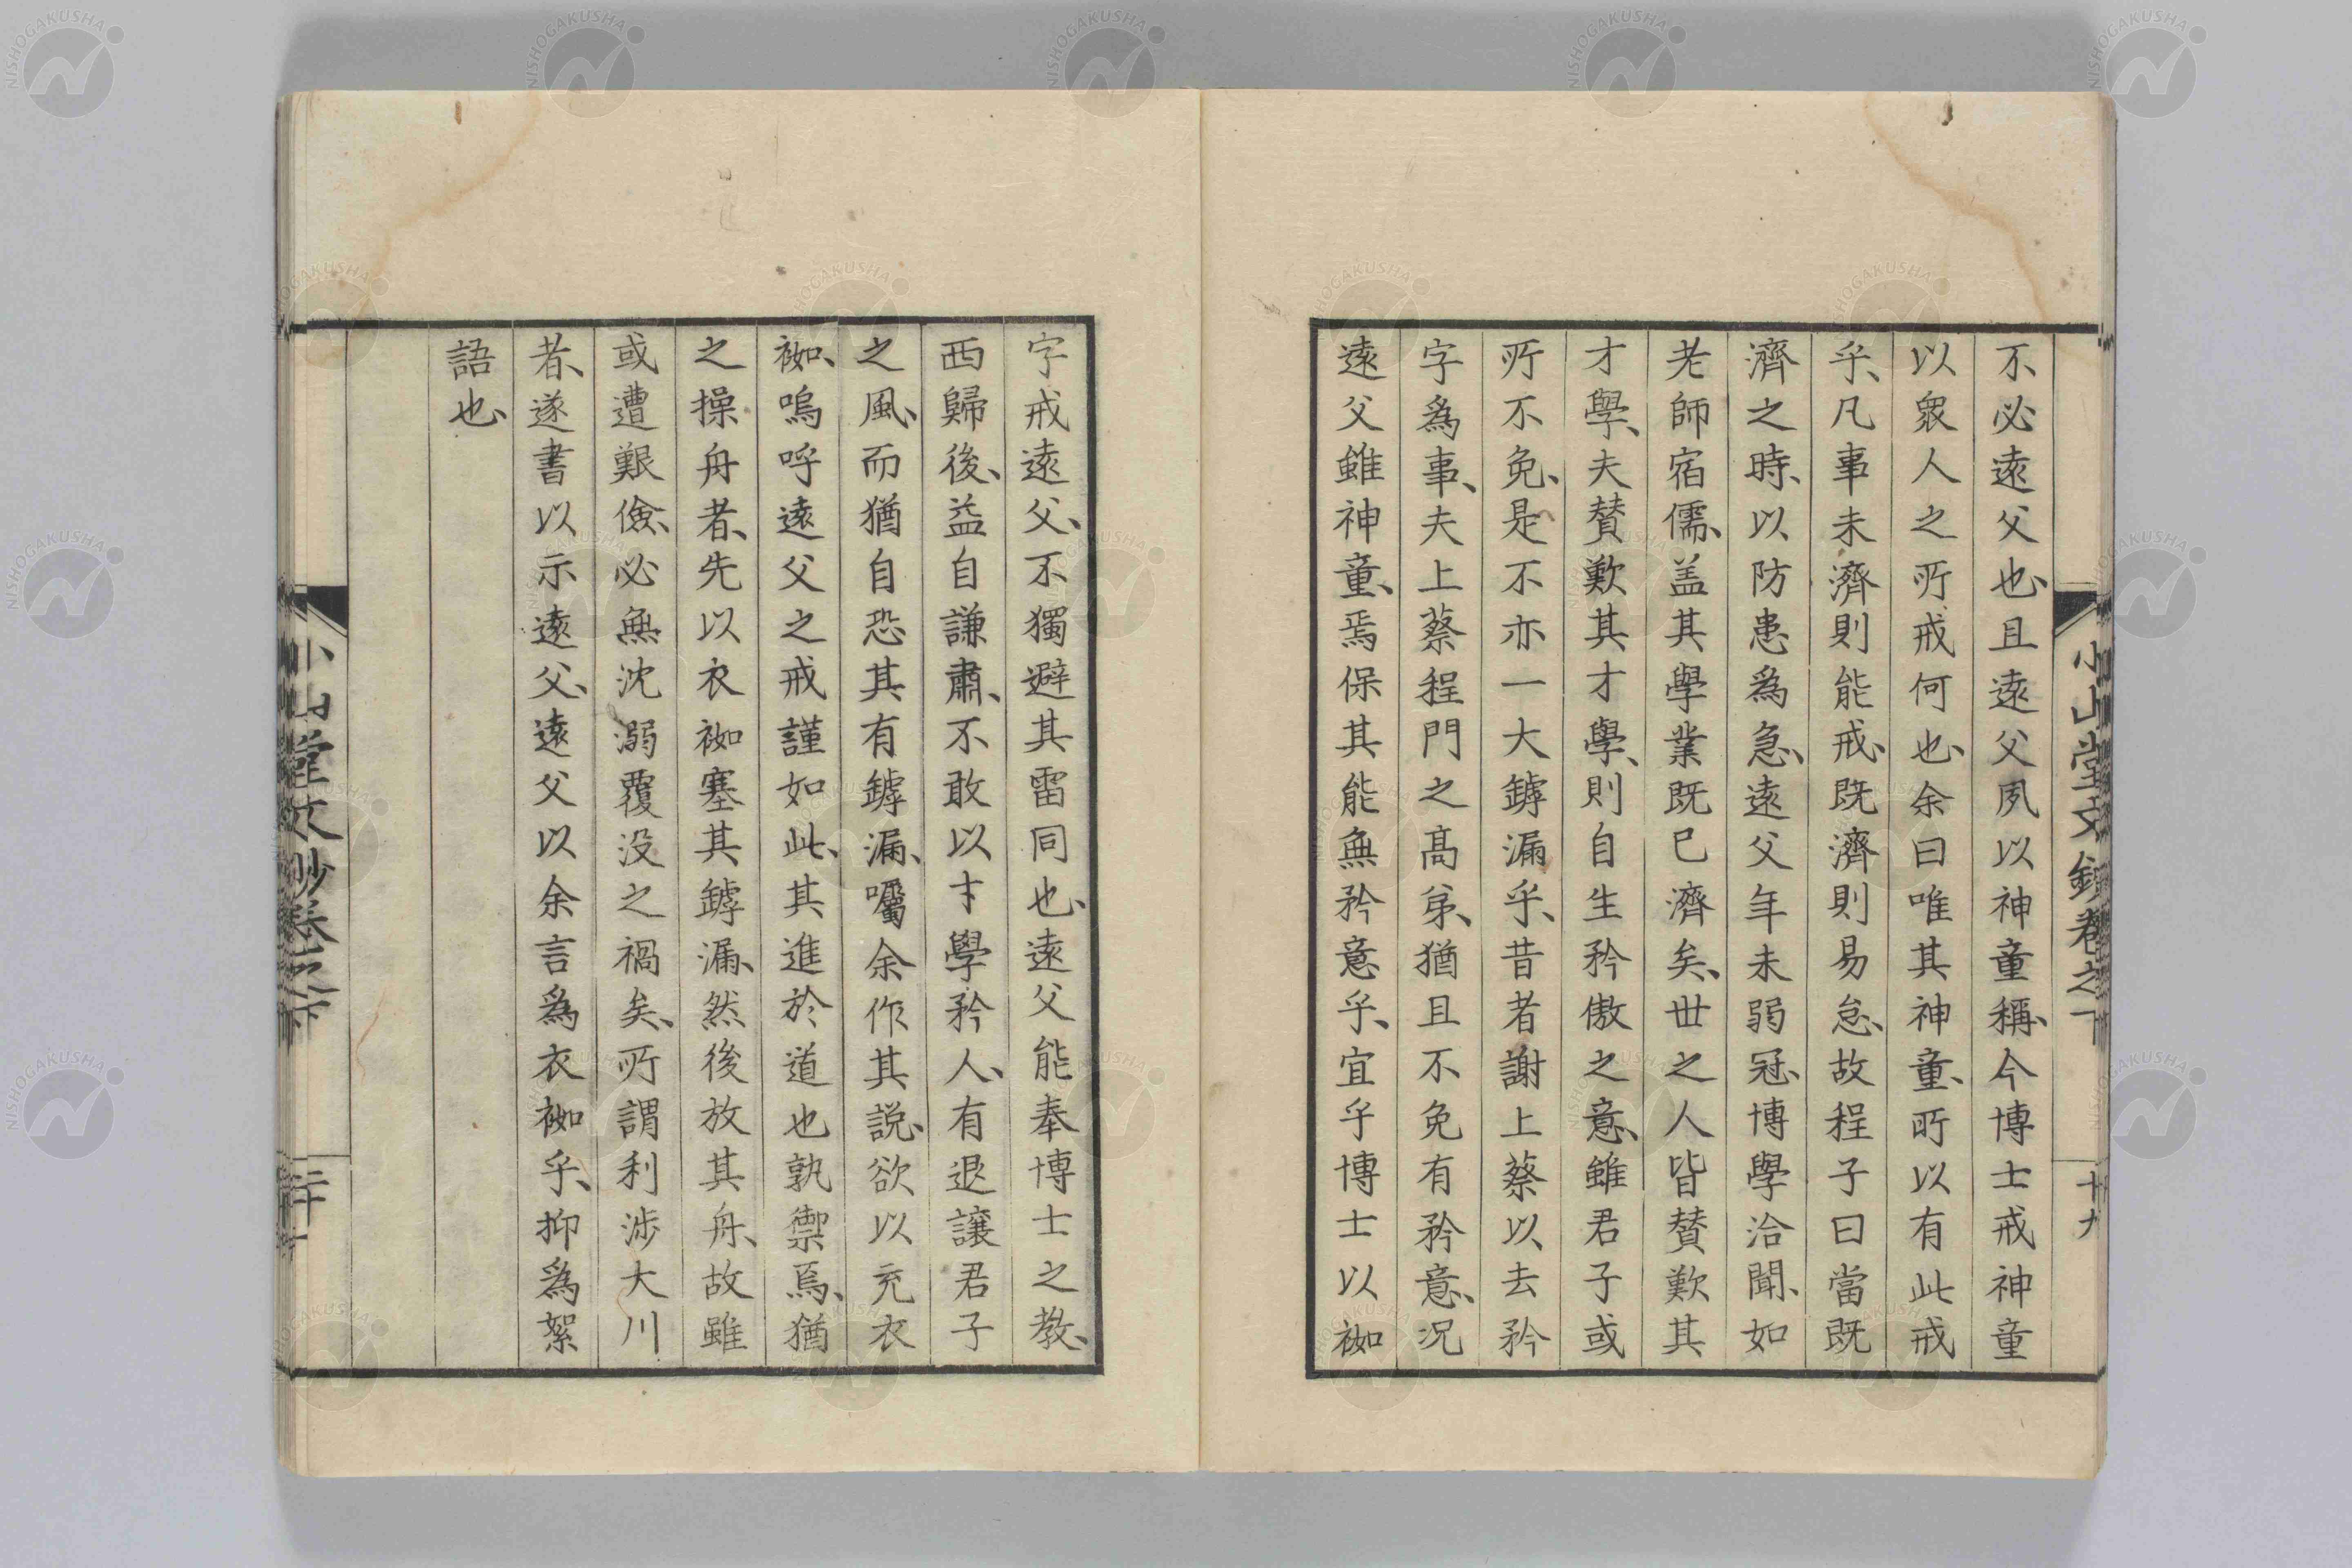 小山堂文鈔卷之下
十九
不必遠父也、且遠父夙以神童稱、今博士戒神童
以衆人之所戒何也、余曰唯其神童、所以有此戒
乎、凡事未濟則能戒、既濟則易怠、故程子曰當既
濟之時、以防患為急、遠父年未弱冠、博學洽聞、如
老師宿儒、盖其學業既已濟矣、世之人皆賛歎其
才學、夫賛歎其才學、則自生矜傲之意、雖君子或
所不免、是不亦一大罅漏乎、昔者謝上蔡以去矜
字爲事、夫上蔡程門之髙弟、猶且不免有矜意、况
遠父雖神童、焉保其能無矜意乎、宜乎博士以袽
字戒遠父、不獨避其雷同也、遠父能奉博士之教、
西歸後、益自謙肅、不敢以才學矜人、有退讓君子
之風、而猶自恐其有罅漏、囑余作其説、欲以充衣
袽、嗚呼遠父之戒謹如此、其進於道也孰禦焉、猶
之操舟者、先以衣袽塞其罅漏、然後放其舟、故雖
或遭艱儉、必無沈溺覆没之禍矣、所謂利涉大川
者、遂書以示遠父、遠父以余言爲衣袽乎、抑爲絮
語也、
小山堂文鈔卷之下
二十